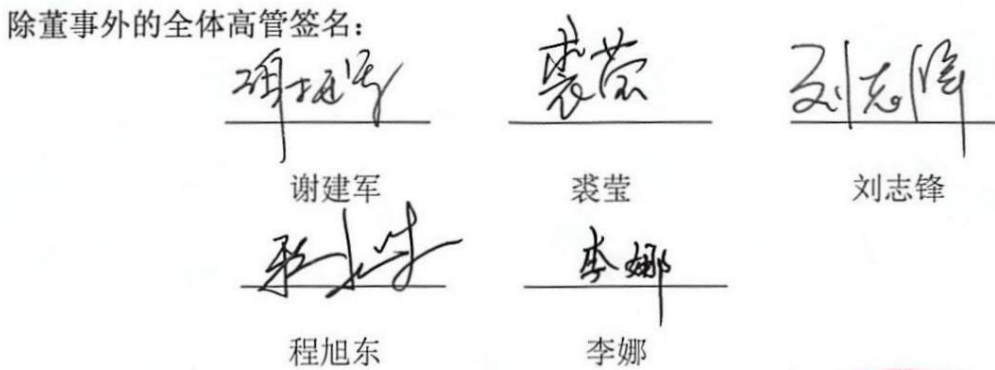 除董事外的全体高管签名：
谢建军 裘莹 刘志锋
谢建军 裘莹 刘志锋
李娜
程旭东 李娜